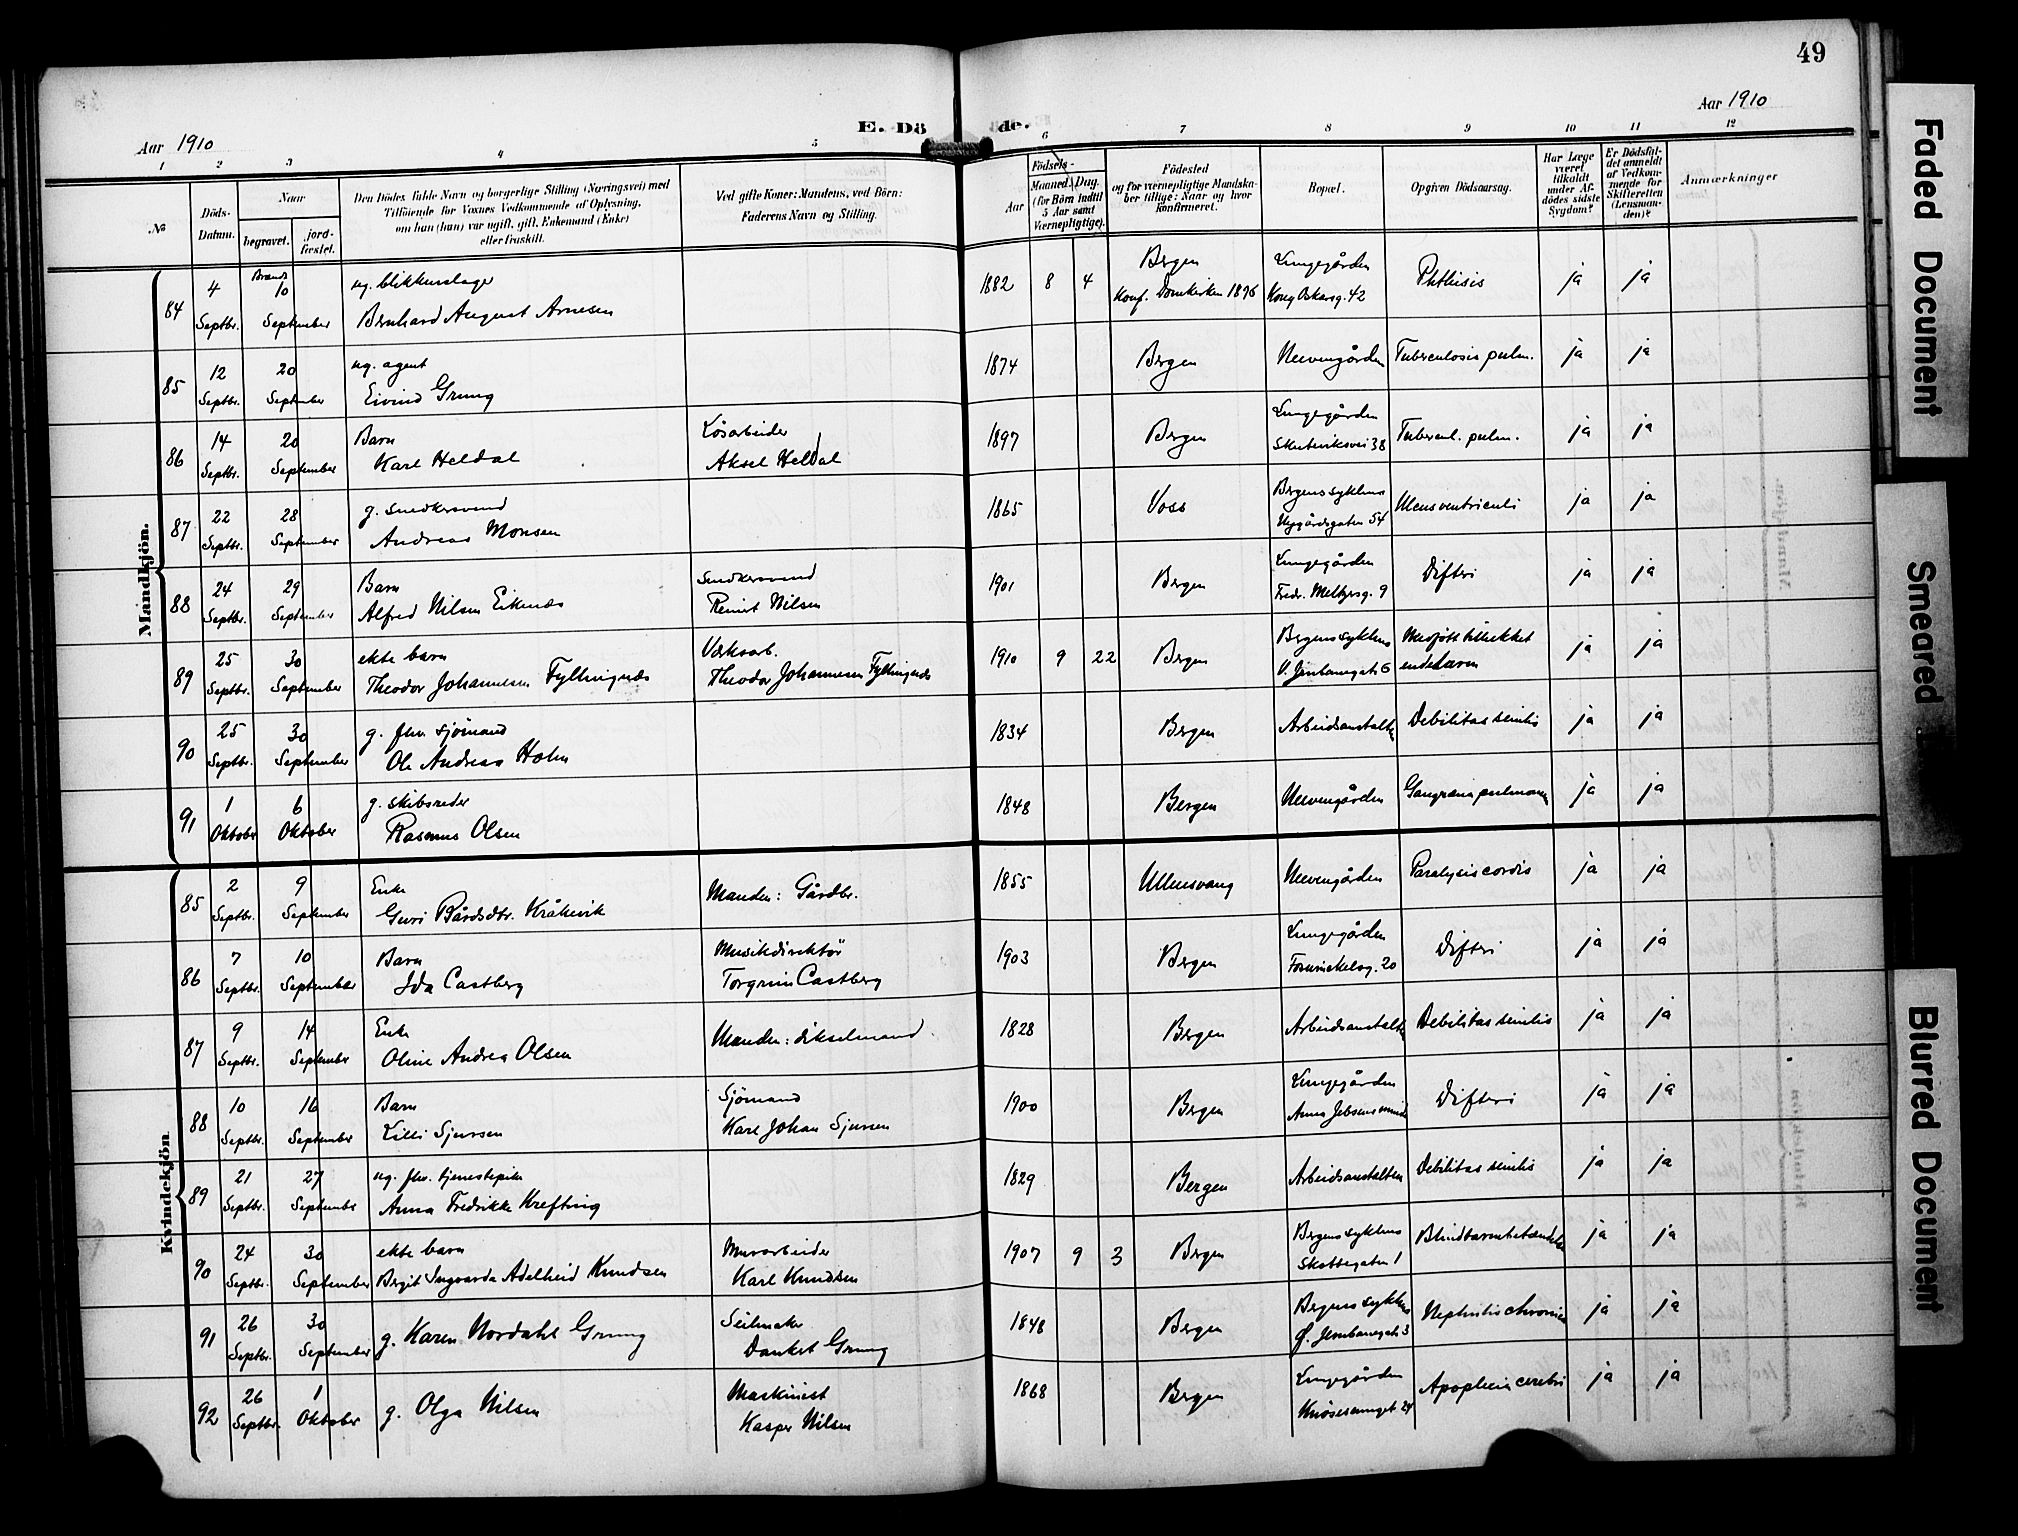 49
Aar 1910
E. Döde.
Aar 1910
1 2 3 4 5 6 7 8 9 10 11 12
No
Döds-Datum.
Naar
begravet.
jordfæstet.
Den Dödes fulde Navn og borgerlige Stilling (Næringsvei) med
Tilföiende for Voxnes Vedkommende af Oplysning,
om han (hun) var ugift, gift, Enkemand (Enke)
eller fraskilt.
Ved gifte Koner: Mandens, ved Börn:
Faderens Navn og Stilling.
Födsels-
Aar
Maaned. Dag.
(for Börn indtil
5 Aar samt
Værnepligtige).
Födested
og for værnepligtige Mandska-
ber tillige: Naar og hvor
konfirmeret.
Bopæl.
Opgiven Dödsaarsag.
Har Læge
været
tilkaldt
under Af-
dödes sidste
Sygdom?
Er Dödsfal-
det anmeldt
af Vedkom-
mende for
Skifteretten
(Lensman-
den)?
Anmærkninger
Mandkjön.
84 4 Septbr. Brændt 10 September ug. blikkenslager
Bernhard August Arnesen 1882 8 4 Bergen
Konf. Domkirken 1896 Lungegården
Kong Oskarsg. 42 Phthisis ja ja
85 12 Septbr. 20 September ug. agent
Eivind Grung 1874 Bergen Neevengården Tuberculosis pulm. ja ja
86 14 Septbr. 20 September Barn
Karl Heldal Løsarbeider
Aksel Heldal 1897 Bergen Lungegården
Skuteviksvei 38 Tubercul. pulm. ja ja
87 22 Septbr. 28 September g. snedkersvend
Andreas Monsen 1865 Voss Bergens sykehus
Nygårdsgaten 54 Ulcus ventriculi ja ja
88 24 Septbr. 29 September Barn
Alfred Nilsen Eiknes Snedkersvend
Reinert Nilsen 1901 Bergen Lungegården
Fredr. Meltzersg. 9 Difteri ja ja
89 25 Septbr. 30 September ekte barn
Theodor Johannesen Fyllingnes Verksarb.
Theodor Johannesen Fyllingnes 1910 9 22 Bergen Bergens sykehus
V. Jernbanegate 6 Medfødt tillukket
endetarm ja ja
90 25 Septbr. 30 September g. fhv. sjömand
Ole Andreas Holm 1834 Bergen Arbeidsanstalten Debilitas senilis ja ja
91 1 Oktober 6 Oktober g. skibsreder
Rasmus Olsen 1848 Bergen Neevengården Gangræna pulmonum ja ja
Kvindekjön.
85 2 Septbr. 9 September Enke
Guri Bårdsdtr. Kråkevik Manden: Gårdbr. 1855 Ullensvang Neevengården Paralysis cordis ja ja
86 7 Septbr. 10 September Barn
Ida Castberg Musikdirektör
Torgrim Castberg 1903 Bergen Lungegården
Foswinckelsg. 20 Difteri ja ja
87 9 Septbr. 14 September Enke
Oline Andrea Olsen Manden: dikselmand 1828 Bergen Arbeidsanstalten Debilitas senilis ja ja
88 10 Septbr. 16 September Barn
Lilli Sjursen Sjömand
Karl Johan Sjursen 1900 Bergen Lungegården
Anna Jebsens minde Difteri ja ja
89 21 Septbr. 27 September ug. fhv. tjenestepike
Anna Fredrikke Krefting 1829 Bergen Arbeidsanstalten Debilitas senilis ja ja
90 24 Septbr. 30 September ekte barn
Bergit Ingvarda Adelheid Knudsen Murarbeider
Karl Knudsen 1907 9 3 Bergen Bergens sykehus
Skottegaten 1 Blindtarmbetændelse ja ja
91 26 Septbr. 30 September g. Karen Nordahl Grung Seilmaker
Dankert Grung 1848 Bergen Bergens sykehus
Ø. Jernbanegate 3 Nephritis chronica ja ja
92 26 Septbr. 1 Oktober g. Olga Nilsen Maskinist
Kasper Nilsen 1868 Bergen Lungegården
Knøsesmuget 24 Apoplexia cerebri ja ja
Faded Document
Smeared
Blurred Document